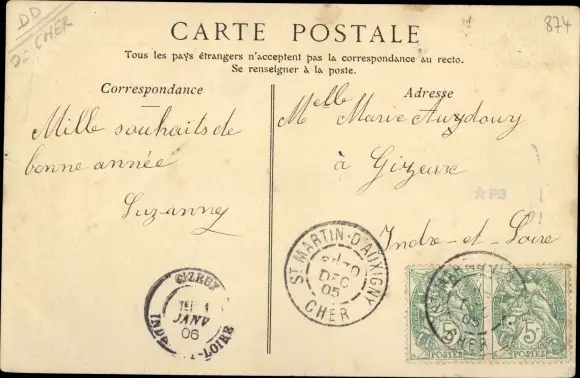 DD
D- CHER
874
CARTE POSTALE
Tous les pays étrangers n'acceptent pas la correspondance au recto.
Se renseigner à la poste.
Correspondance
Adresse
Mille souhaits de
bonne année
Suzanne
Melle Marie Auzdouy
à Gizeux
Indre-et-Loire
PB
ST MARTIN-D'AUXIGNY
DEC
05
CHER
GIZEUX
JANV
06
INDRE-ET-LOIRE
CHER
5c
POSTES
5c
POSTES